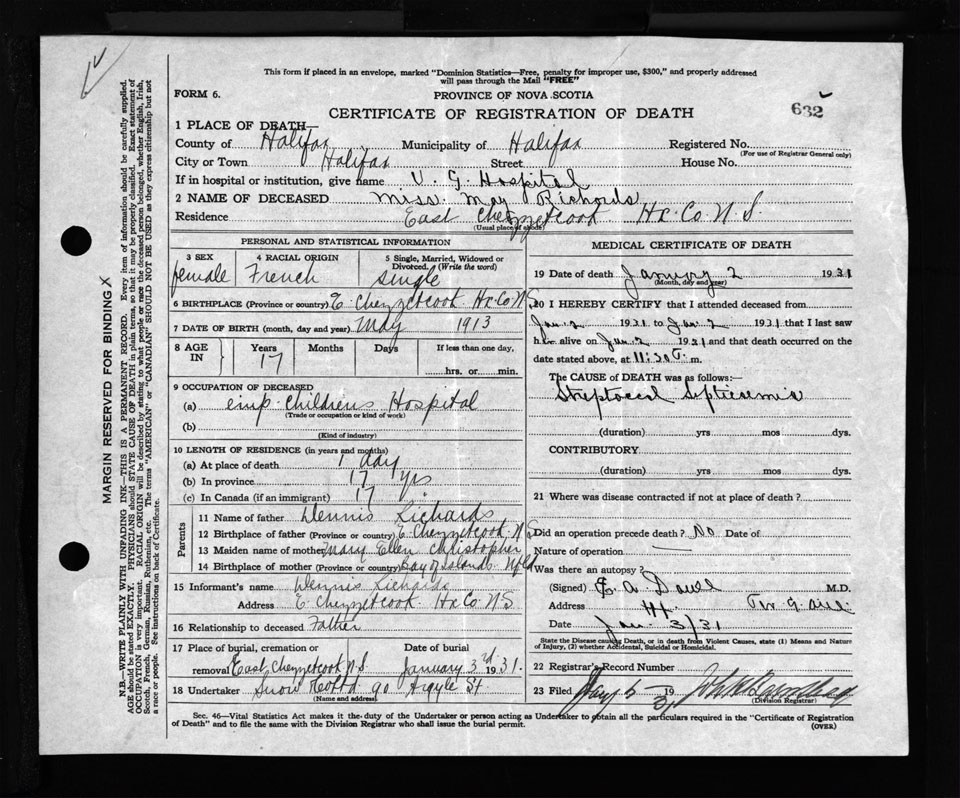 This form if placed in an envelope, marked "Dominion Statistics—Free, penalty for improper use, $300," and properly addressed
will pass through the Mail "FREE"
FORM 6.
PROVINCE OF NOVA SCOTIA
632
CERTIFICATE OF REGISTRATION OF DEATH
1 PLACE OF DEATH—
County of Halifax Municipality of Halifax Registered No.
(For use of Registrar General only)
City or Town Halifax Street House No.
If in hospital or institution, give name V. G. Hospital
2 NAME OF DECEASED Miss. May Richards
Residence East Chezzetcook Hx. Co. N. S.
(Usual place of abode)
PERSONAL AND STATISTICAL INFORMATION
3 SEX 4 RACIAL ORIGIN 5 Single, Married, Widowed or
Divorced. (Write the word)
female French single
6 BIRTHPLACE (Province or country) E. Chezzetcook Hx Co N S
7 DATE OF BIRTH (month, day and year) May 1913
8 AGE IN Years Months Days If less than one day,
17 hrs. or min.
9 OCCUPATION OF DECEASED
(a) emp. Childrens Hospital
(Trade or occupation or kind of work)
(b)
(Kind of industry)
10 LENGTH OF RESIDENCE (in years and months)
(a) At place of death 1 day
(b) In province 17 yrs
(c) In Canada (if an immigrant) 17
Parents
11 Name of father Dennis Richards
12 Birthplace of father (Province or country) E. Chezzetcook. N S
13 Maiden name of mother Mary Ellen Christopher
14 Birthplace of mother (Province or country) Bay of Islands Nfld
15 Informant's name Dennis Richards
Address E. Chezzetcook. Hx Co N S
16 Relationship to deceased Father
17 Place of burial, cremation or Date of burial
removal East Chezzetcook N.S. January 3rd 1931.
18 Undertaker Snow Co Ltd 90 Argyle St
(Name and address)
MEDICAL CERTIFICATE OF DEATH
19 Date of death January 2 1931
(Month, day and year)
20 I HEREBY CERTIFY that I attended deceased from
Jan. 2 1931 to Jan. 2 1931 that I last saw
her alive on Jan. 2 1931 and that death occurred on the
date stated above, at 11:30 P. m.
The CAUSE of DEATH was as follows:—
Streptococcal Septicaemia
(duration) yrs mos dys.
CONTRIBUTORY
(duration) yrs. mos dys.
21 Where was disease contracted if not at place of death?
Did an operation precede death? No Date of
Nature of operation
Was there an autopsy?
(Signed) M.D.
Address Hx.
Date Jan. 3/31
State the Disease causing Death, or in death from Violent Causes, state (1) Means and Nature
of Injury, (2) whether Accidental, Suicidal or Homicidal.
22 Registrar's Record Number
23 Filed Jany 5 1931
(Division Registrar)
Sec. 46—Vital Statistics Act makes it the duty of the Undertaker or person acting as Undertaker to obtain all the particulars required in the "Certificate of Registration
of Death" and to file the same with the Division Registrar who shall issue the burial permit.
(OVER)
MARGIN RESERVED FOR BINDING X
N.B.—WRITE PLAINLY WITH UNFADING INK—THIS IS A PERMANENT RECORD. Every item of information should be carefully supplied.
AGE should be stated EXACTLY. PHYSICIANS should STATE CAUSE OF DEATH in plain terms, so that it may be properly classified. Exact statement of
OCCUPATION is very important. RACIAL ORIGIN will be described by stating to what people or race the deceased person belonged, whether English, Irish,
Scotch, French, German, Russian, Ruthenian, etc. The terms "AMERICAN" or "CANADIAN" SHOULD NOT BE USED as they express citizenship but not
a race or people. See instructions on back of Certificate.